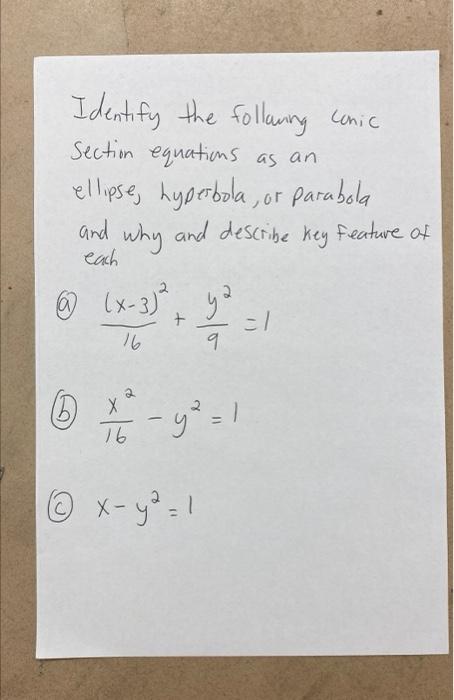 Identify the following conic
section equations as an
ellipse, hyperbola, or parabola
and why and describe key feature of
each
ⓐ (x-3)²/16 + y²/9 = 1
ⓑ x²/16 - y² = 1
ⓒ x - y² = 1